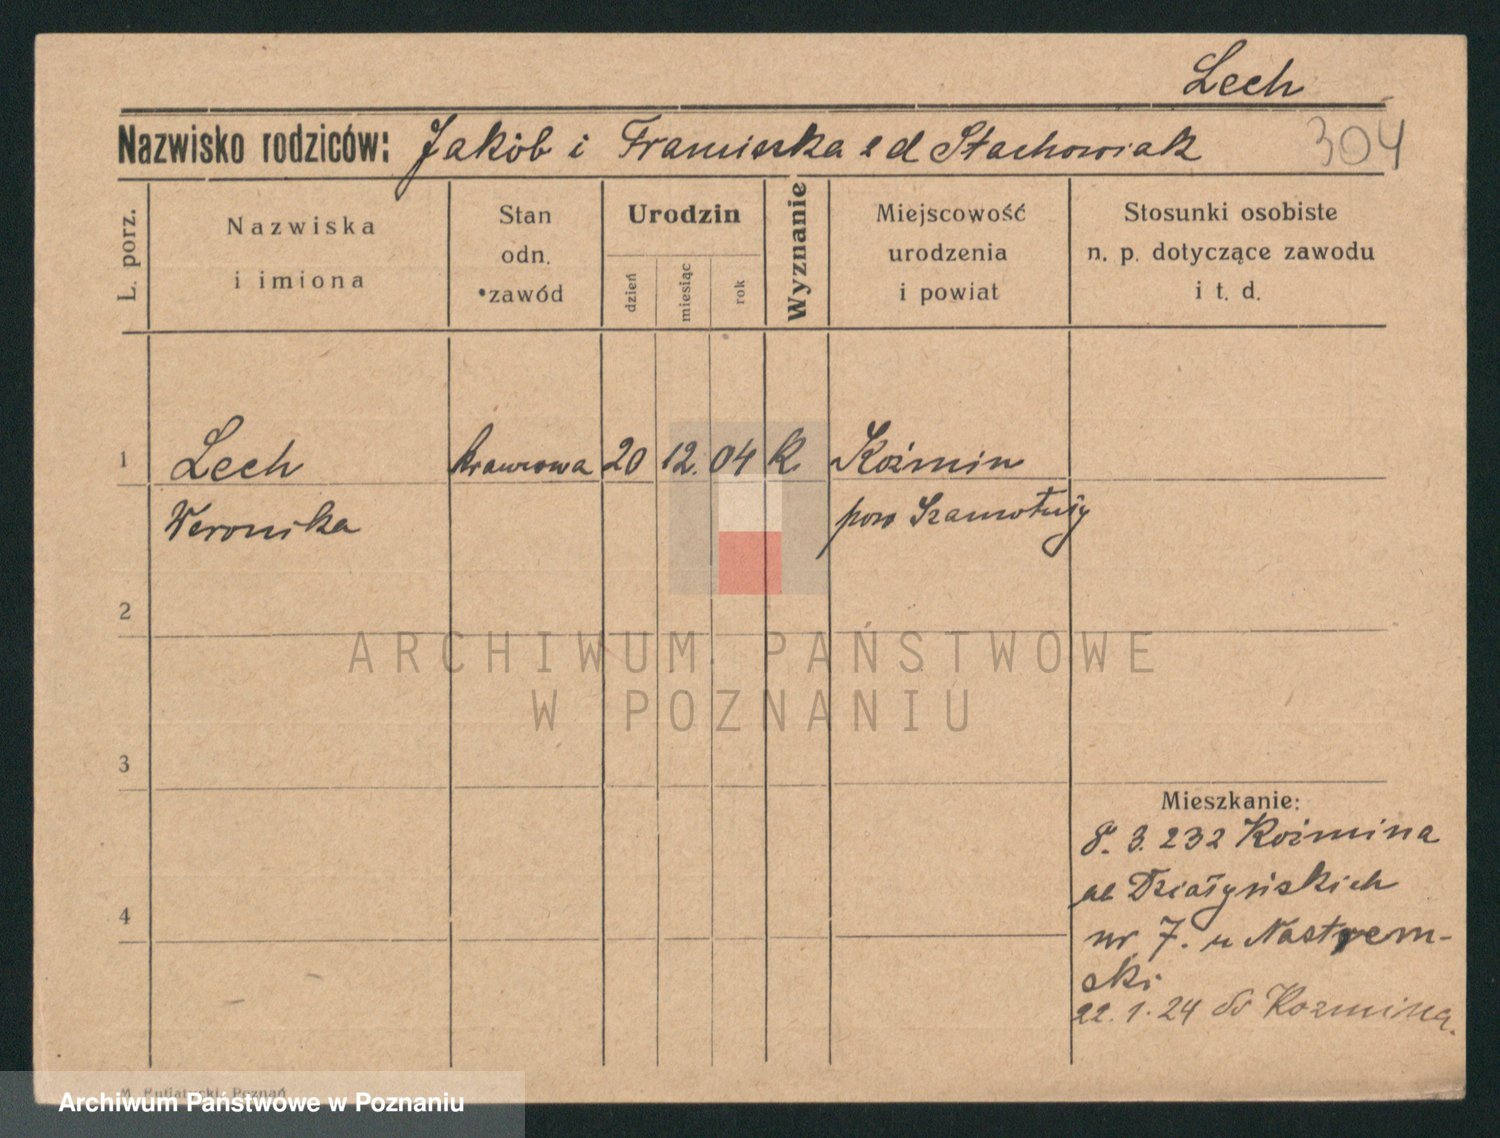 Lech
Nazwisko rodziców: Jakób i Franciszka z d Stachowiak 304
L. porz.
Nazwiska i imiona
Stan odn. zawód
Urodzin
dzień
miesiąc
rok
Wyznanie
Miejscowość urodzenia i powiat
Stosunki osobiste n. p. dotyczące zawodu i t. d.
1 Lech krawcowa 20 12. 04 k. Koźmin
Weronika pow Szamotuły
2
ARCHIWUM PAŃSTWOWE
W POZNANIU
3
Mieszkanie:
8. 3. 232 Koźmina
ul Działyńskich
4
nr 7. u Nastrem-
ski
22. 1. 24 do Kozmina.
Poznań
Archiwum Państwowe w Poznaniu